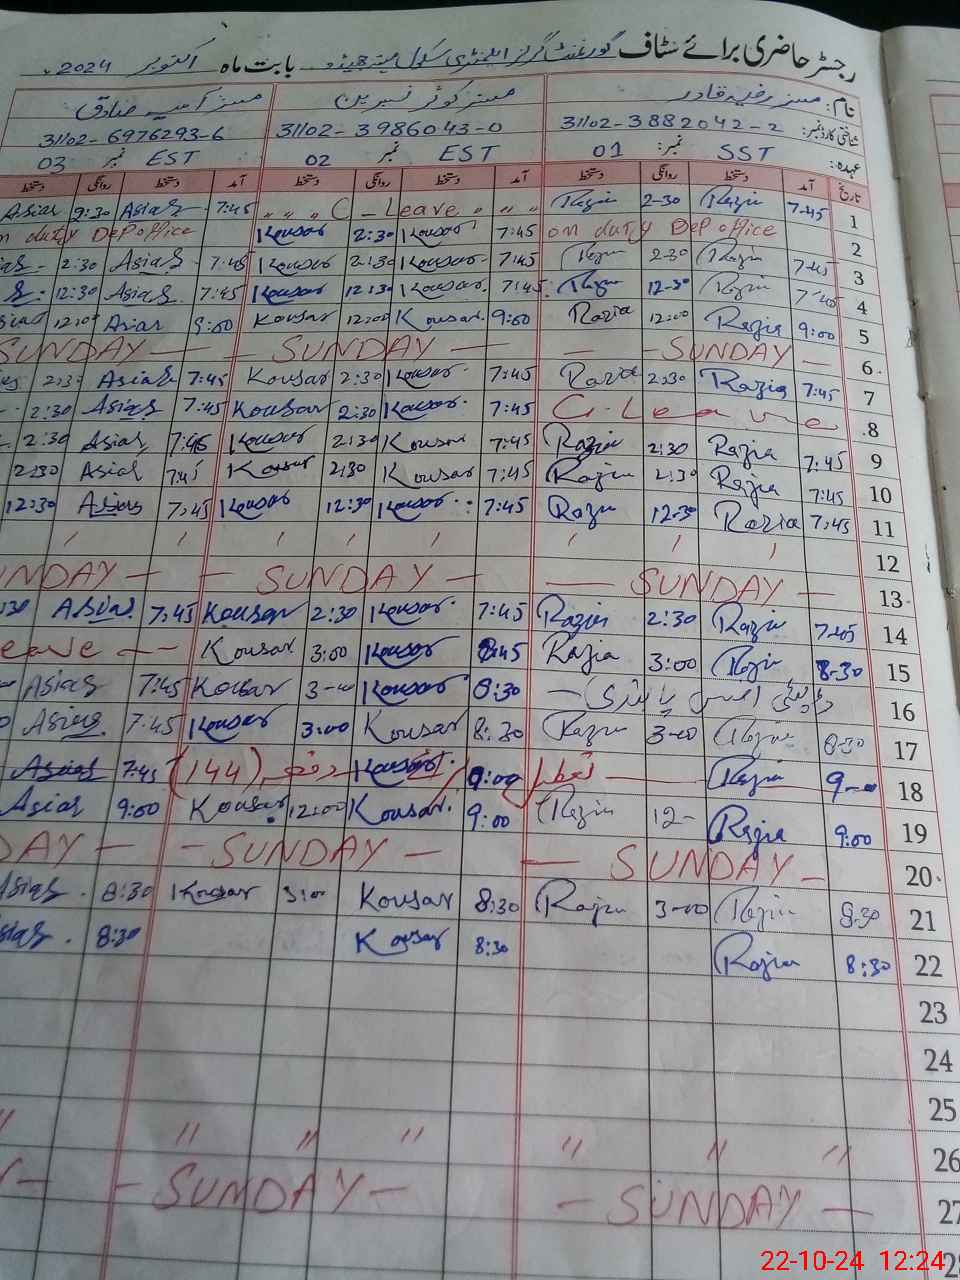 رجسٹر حاضری برائے سٹاف گورنمنٹ گرلز ایلیمنٹری سکول بابت ماہ اکتوبر 2024
نام: مسز رضیہ قادر مسز کوثر نسرین مسز آسیہ صادق
شناختی کارڈ نمبر: 31102-3882042-2 31102-3986043-0 31102-6976293-6
عہدہ: SST نمبر: 01 EST نمبر 02 EST نمبر 03
تاریخ آمد دستخط روانگی دستخط آمد دستخط روانگی دستخط آمد دستخط روانگی دستخط
1 7-45 Razia 2-30 Razia " " " C-Leave " " " 7:45 Asias 2:30 Asias
2 on duty DeP office 7:45 Kousar 2:30 Kousar on duty DeP office
3 7-45 Razia 2-30 Razia 7:45 Kousar 2:30 Kousar 7:45 Asias 2:30
4 7-45 Razia 12-30 Razia 7:45 Kousar 12:30 Kousar 7:45 Asias 12:30
5 9:00 Razia 12:00 Razia 9:00 Kousar 12:00 Kousar 9:00 Asias 12:00
6 - SUNDAY - - SUNDAY - SUNDAY -
7 7:45 Razia 2:30 Razia 7:45 Kousar 2:30 Kousar 7:45 Asias 2:30
8 C-Leave 7:45 Kousar 2:30 Kousar 7:45 Asias 2:30
9 7:45 Razia 2:30 Razia 7:45 Kousar 2:30 Kousar 7:45 Asias 2:30
10 7:45 Razia 2:30 Razia 7:45 Kousar 2:30 Kousar 7:45 Asias 2:30
11 7:45 Razia 12-30 Razia 7:45 Kousar 12:30 Kousar 7:45 Asias 12:30
12 ' ' ' ' ' ' ' '
13 - SUNDAY - - SUNDAY - NDAY -
14 7:45 Razia 2:30 Razia 7:45 Kousar 2:30 Kousar 7:45 Asias :30
15 8-30 Razia 3:00 Razia 8:45 Kousar 3:00 Kousar eave -
16 8:30 Kousar 3-00 Kousar 7:45 Asias
17 8:30 Razia 3-00 Razia 8:30 Kousar 3:00 Kousar 7:45 Asias
18 9-00 Razia تعطیل 9:00 Kousar دفعہ (144) 7:45 Asias
19 9:00 Razia 12- Razia 9:00 Kousar 12:00 Kousar 9:00 Asias
20 - SUNDAY - - SUNDAY - DAY -
21 8:30 Razia 3-00 Razia 8:30 Kousar 3:00 Kousar 8:30 Asias
22 8:30 Razia 8:30 Kousar 8:30 Asias
23
24
25
26 " " " " " " "
27 - SUNDAY - - SUNDAY -
22-10-24 12:24